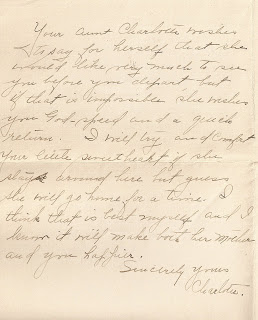 Your aunt Charlotte wishes
to say for herself that she
would like, very much to see
you before you depart but
if that is impossible she wishes
you God-speed and a quick
return. I will try and comfort
your little sweetheart if she
stays around here but guess
she will go home for a time. I
think that is best myself and I
know it will make both her mother
and you happier.
Sincerely yours
Charlotte.